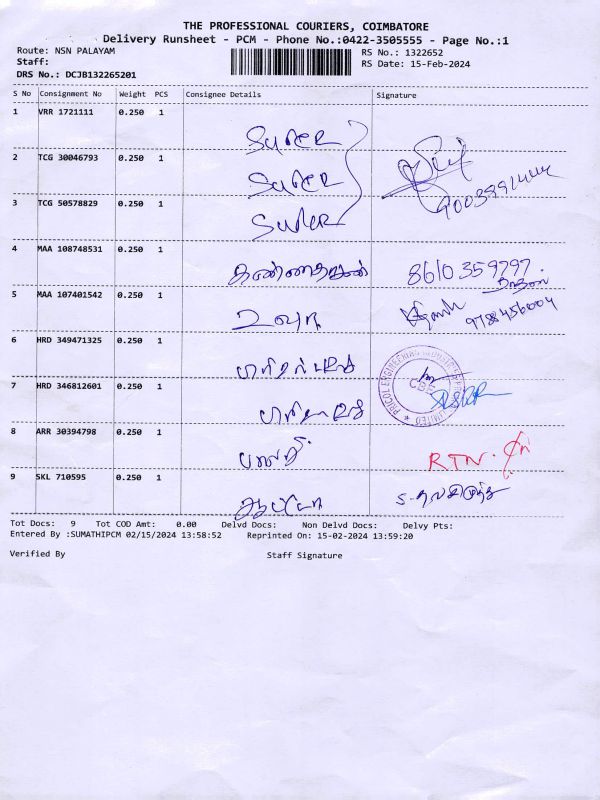 THE PROFESSIONAL COURIERS, COIMBATORE
Delivery Runsheet - PCM - Phone No.:0422-3505555 - Page No.:1
Route: NSN PALAYAM RS No.: 1322652
Staff: RS Date: 15-Feb-2024
DRS No.: DCJB132265201
S No Consignment No Weight PCS Consignee Details Signature
1 VRR 1721111 0.250 1 Super
2 TCG 30046793 0.250 1 Super
3 TCG 50578829 0.250 1 Super
4 MAA 108748531 0.250 1 8610 359797
5 MAA 107401542 0.250 1 9788456004
6 HRD 349471325 0.250 1
7 HRD 346812601 0.250 1
PRICOL ENGINEERING LIMITED CBE
8 ARR 30394798 0.250 1 RTN.
9 SKL 710595 0.250 1
Tot Docs: 9 Tot COD Amt: 0.00 Delvd Docs: Non Delvd Docs: Delvy Pts:
Entered By :SUMATHIPCM 02/15/2024 13:58:52 Reprinted On: 15-02-2024 13:59:20
Verified By Staff Signature